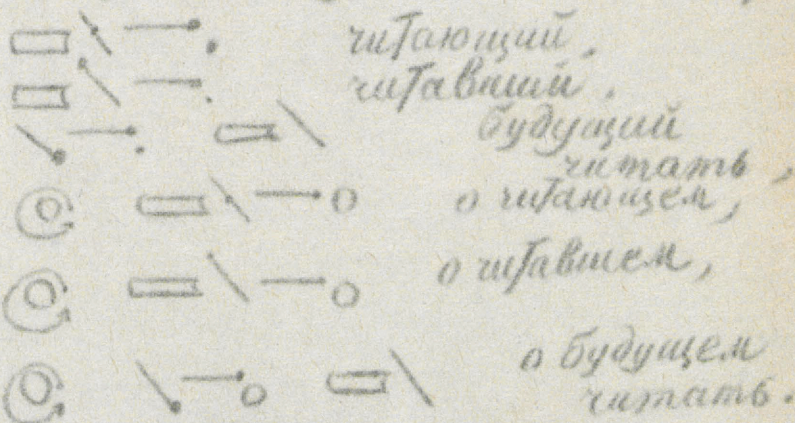 читающий,
читавший.
будущий
читать,
о читающем,
о читавшем,
о будущем
читать.